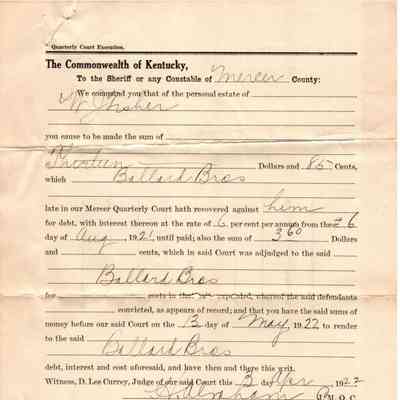 Quarterly Court Execution.
The Commonwealth of Kentucky,
To the Sheriff or any Constable of Mercer County:
We command you that of the personal estate of
W J Fisher
you cause to be made the sum of
Thirteen Dollars and 85 Cents,
which Ballard Bros
late in our Mercer Quarterly Court hath recovered against him
for debt, with interest thereon at the rate of 6 per cent per annum from the 26
day of Aug, 1921, until paid; also the sum of 3 60 Dollars
and cents, which in said Court was adjudged to the said
Ballard Bros
for costs in that expended, whereof the said defendants
convicted, as appears of record; and that you have the said sums of
money before our said Court on the day of May, 1922 to render
to the said
Ballard Bros
debt, interest and cost aforesaid, and have then and there this writ.
Witness, D. Lee Currey, Judge of our said Court this 3 day 1922
Q. C.